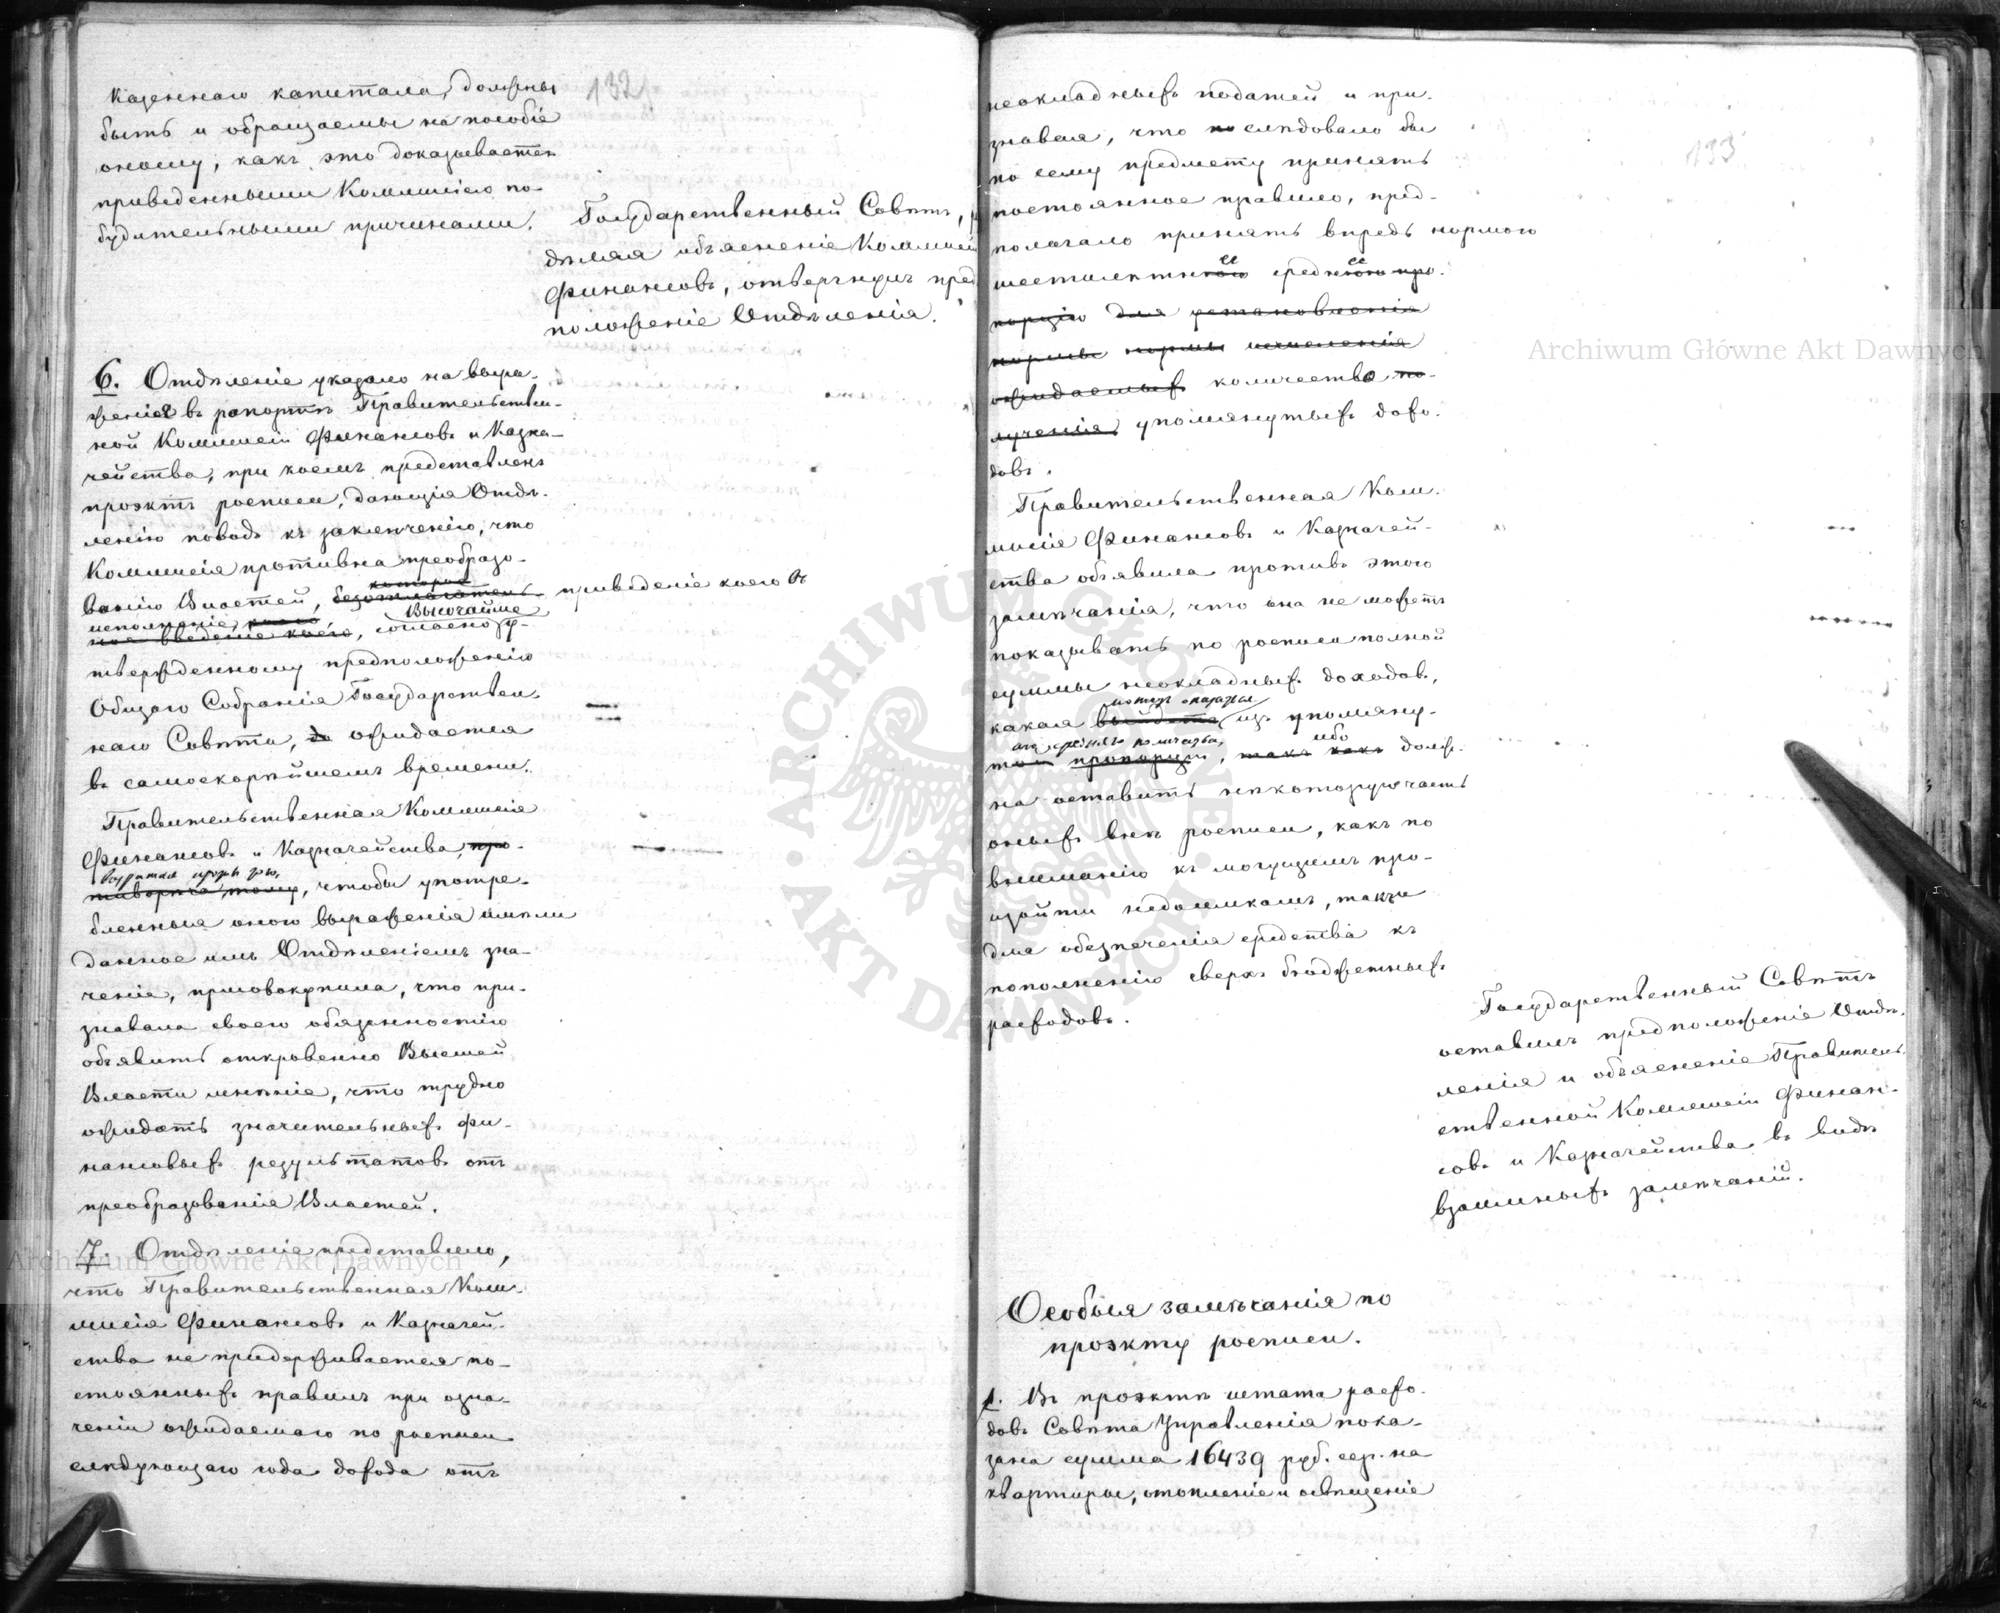 132
казеннаго капитала, должны
быть и обращаемы на пособіе
оному, какъ это доказывается
приведенными Коммисіею по-
будительными причинами.
Государственный Совѣтъ,
объясненіе Коммисіи
Финансовъ, отвергнулъ пред
положеніе Отдѣленія.
6. Отдѣленіе указало на выра-
женія въ рапортѣ Правительствен-
ной Коммисіи Финансовъ и Казна-
чейства, при коемъ представленъ
проэктъ росписи, дающія Отдѣ-
ленію поводъ къ заключенію, что
Коммисія противна преобразо-
ванію Властей, приведеніе коего въ
исполненіе, согласно Высочайше у-
твержденному предположенію
Общаго Собранія Государствен-
наго Совѣта, ожидается
въ самоскорѣйшемъ времени.
Правительственная Коммисія
Финансовъ и Казначейства,
чтобы употре-
бленныя оною выраженія имѣли
данное имъ Отдѣленіемъ зна-
ченіе, присовокупила, что при-
знавала своею обязанностію
объявить откровенно Высшей
Власти мнѣніе, что трудно
ожидать значительныхъ фи-
нансовыхъ результатовъ отъ
преобразованія Властей.
7. Отдѣленіе представило,
что Правительственная Ком-
мисія Финансовъ и Казначей-
ства не придерживается по-
стоянныхъ правилъ при озна-
ченіи ожидаемаго по росписи
слѣдующаго года дохода отъ
133
неокладныхъ податей и при-
знавая, что слѣдовало бы
по сему предмету принять
постоянное правило, пред-
полагало принять впредь нормою
шестилѣтнее среднее
количество
упомянутыхъ дохо-
довъ.
Правительственная Ком-
мисія Финансовъ и Казначей-
ства объявила противъ этого
замѣчанія, что она не можетъ
показывать по росписи полной
суммы неокладныхъ доходовъ,
какая изъ упомяну-
таго средняго количества, ибо долж-
на оставить нѣкоторую часть
оныхъ внѣ росписи, какъ по
вниманію къ могущимъ про-
изойти недоимкамъ, такъ и
для обезпеченія средства къ
пополненію сверхъ бюджетныхъ
расходовъ.
Государственный Совѣтъ
оставилъ предположеніе Отдѣ-
ленія и объясненіе Правитель-
ственной Коммисіи Финан-
совъ и Казначейства въ видѣ
взаимныхъ замѣчаній.
Особыя замѣчанія по
проэкту росписи.
1. Въ проэктѣ штата расхо-
довъ Совѣта Управленія пока-
зана сумма 16439 руб. сер. на
квартиры, отопленіе и освѣщеніе
Archiwum Główne Akt Dawnych
Archiwum Główne Akt Dawnych
ARCHIWUM GŁÓWNE AKT DAWNYCH